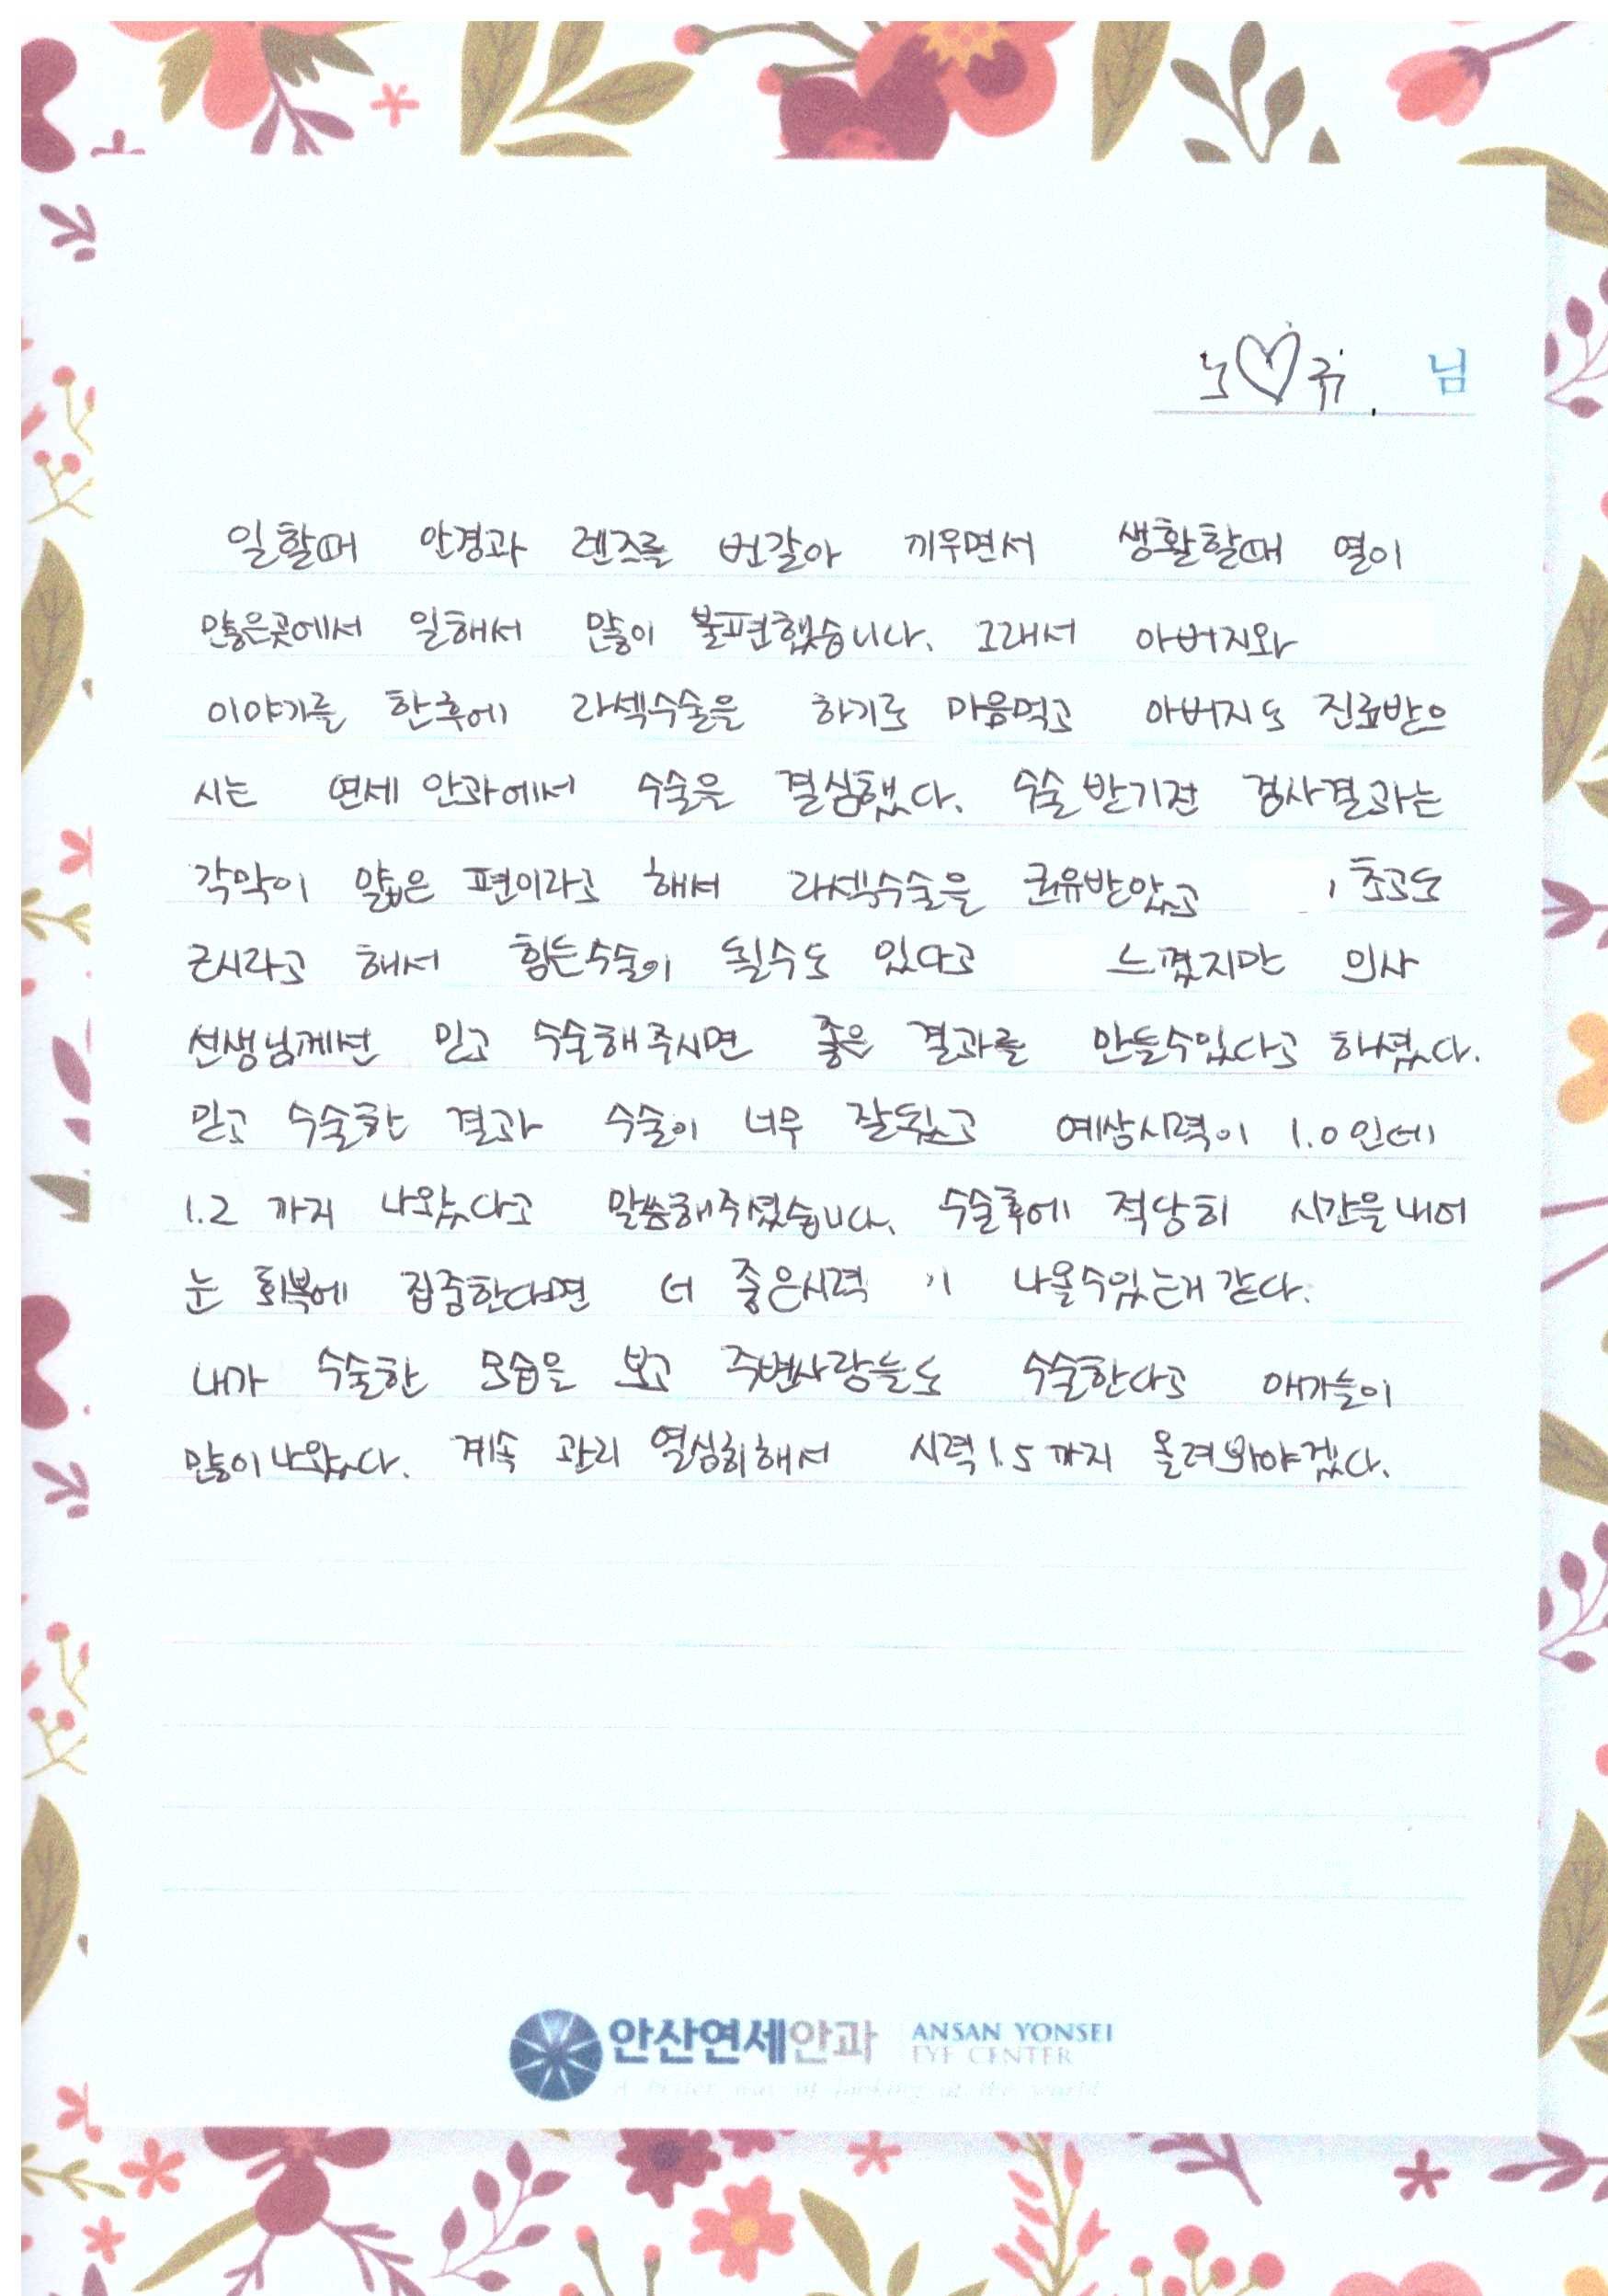 노♡규. 님
일할때 안경과 렌즈를 번갈아 끼우면서 생활할때 열이
많은곳에서 일해서 많이 불편했습니다. 그래서 아버지와
이야기를 한후에 라섹수술을 하기로 마음먹고 아버지도 진료받으
시는 연세 안과에서 수술을 결심했다. 수술 받기전 검사결과는
각막이 얇은 편이라고 해서 라섹수술을 권유받았고 , 초고도
근시라고 해서 힘든수술이 될수도 있다고 느꼈지만 의사
선생님께선 믿고 수술해주시면 좋은 결과를 만들수있다고 하셨다.
믿고 수술한 결과 수술이 너무 잘됬고 예상시력이 1.0인데
1.2 까지 나왔다고 말씀해주셨습니다. 수술후에 적당히 시간을내어
눈 회복에 집중한다면 더 좋은시력 이 나올수있는거 같다.
내가 수술한 모습을 보고 주변사람들도 수술한다고 얘기들이
많이나왔다. 계속 관리 열심히해서 시력1.5까지 올려봐야겠다.
안산연세안과 ANSAN YONSEI
EYE CENTER